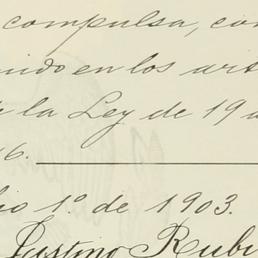 compulsa, con
nido en los art
la Ley de 19 d
6.
io 1º de 1903.
Justino Rubi